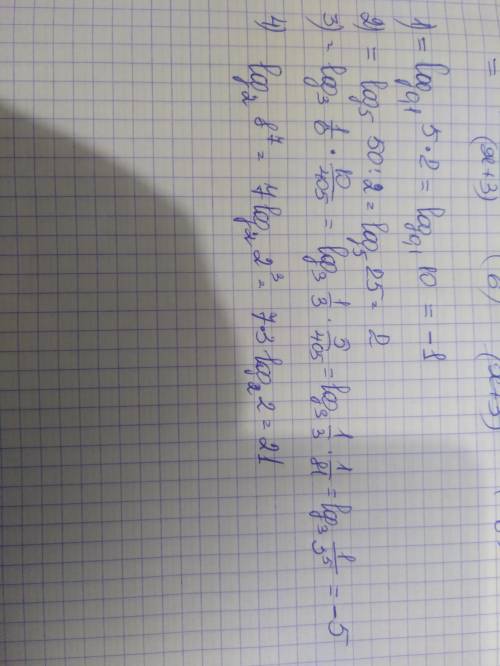 = (x+3) (6) (x+3)
1) = log₀,₁ 5·2 = log₀,₁ 10 = -1
2) = log₅ 50:2 = log₅ 25 = 2
3) = log₃ 1/6 · 10/405 = log₃ 1/3 · 5/405 = log₃ 1/3 · 1/81 = log₃ 1/3⁵ = -5
4) log₂ 8⁷ = 7 log₂ 2³ = 7·3 log₂ 2 = 21